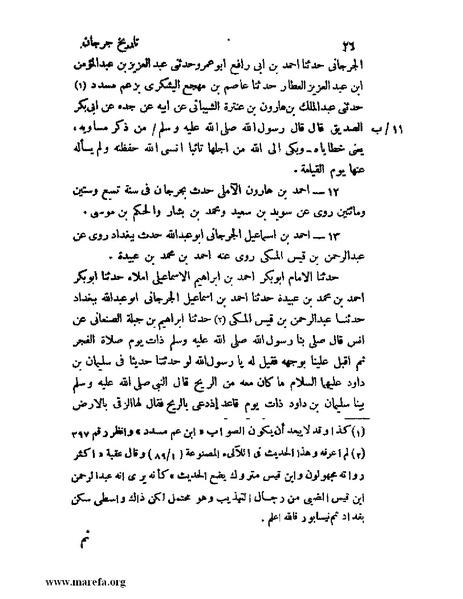 ٢٦ تاريخ جرجان
الجرجانى حدثنا احمد بن ابى رافع ابو عمرو حدثنى عبد العزيز بن عبد المؤمن
ابن عبد العزيز العطار حدثنا عاصم بن مهجع اليشكرى بزعم مسدد (١)
حدثنى عبد الملك بن هارون بن عنترة الشيبانى عن ابيه عن جده عن ابى بكر
١١/ب الصديق قال قال رسول الله صلى الله عليه وسلم / من ذكر مساويه،
يعنى خطاياه ـ وبكى الى الله من اجلها تائبا انسى الله حفظته ولم يسأله
عنها يوم القيامة.
١٢ ـ احمد بن هارون الآملى حدث بجرجان فى سنة تسع وستين
ومائتين روى عن سويد بن سعيد ومحمد بن بشار والحكم بن موسى.
١٣ ـ احمد بن اسماعيل الجرجانى ابو عبدالله حدث ببغداد روى عن
عبدالرحمن بن قيس المكى روى عنه احمد بن محمد بن عبيدة.
حدثنا الامام ابوبكر احمد بن ابراهيم الاسماعيلى املاء حدثنا ابوبكر
احمد بن محمد بن عبيدة حدثنا احمد بن اسماعيل الجرجانى ابو عبدالله ببغداد
حدثنا عبدالرحمن بن قيس المكى (٢) حدثنا ابراهيم بن جبلة الصنعانى عن
انس قال صلى بنا رسول الله صلى الله عليه وسلم ذات يوم صلاة الفجر
ثم اقبل علينا بوجهه فقيل له يا رسول الله لو حدثتنا حديثا فى سليمان بن
داود عليهما السلام ما كان معه من الريح قال النبى صلى الله عليه وسلم
بينا سليمان بن داود ذات يوم قاعد إذ دعى بالريح فقال لها الزقى بالارض
(١) كذا وقد لا يبعد أن يكون الصواب «ابن عم مسدد» وانظر رقم ٣٩٧
(٢) لم اعرفه وهذا الحديث فى اللآلىء المصنوعة (٨٩/١) وقال عقبة «اكثر
رواته مجهولون وابن قيس متروك يضع الحديث» كأنه يرى انه عبدالرحمن
ابن قيس الضبى من رجال التهذيب وهو محتمل لكن ذاك واسطى سكن
بغداد ثم نيسابور فالله اعلم.
ثم
www.marefa.org